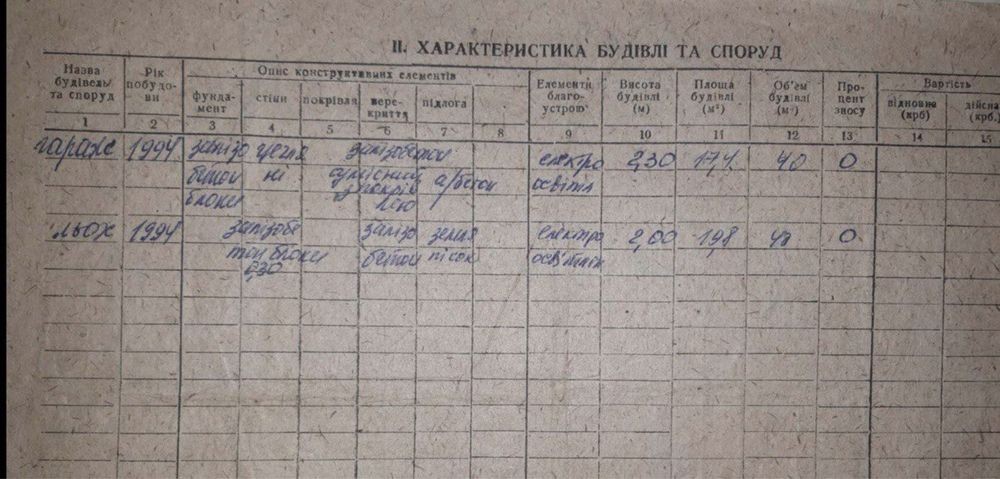 II. ХАРАКТЕРИСТИКА БУДІВЛІ ТА СПОРУД
Назва будівель/ та споруд
Рік побудови
Опис конструктивних елементів
фундамент
стіни
покрівля
перекриття
підлога
Елементи благоустрою
Висота будівлі (м)
Площа будівлі (м²)
Об'єм будівлі (м³)
Процент зносу
Вартість
відновне (крб)
дійсна (крб.)
1 2 3 4 5 6 7 8 9 10 11 12 13 14 15
гараж 1994 залізо цегля залізобетон електро 2,30 17,4 40 0
бетон ні сумісний а/бетон освітл
блоки з покрів
лею
льох 1994 залізобе залізо земля електро 2,00 19,8 0
тон блоки бетон пісок освітлен
0,30